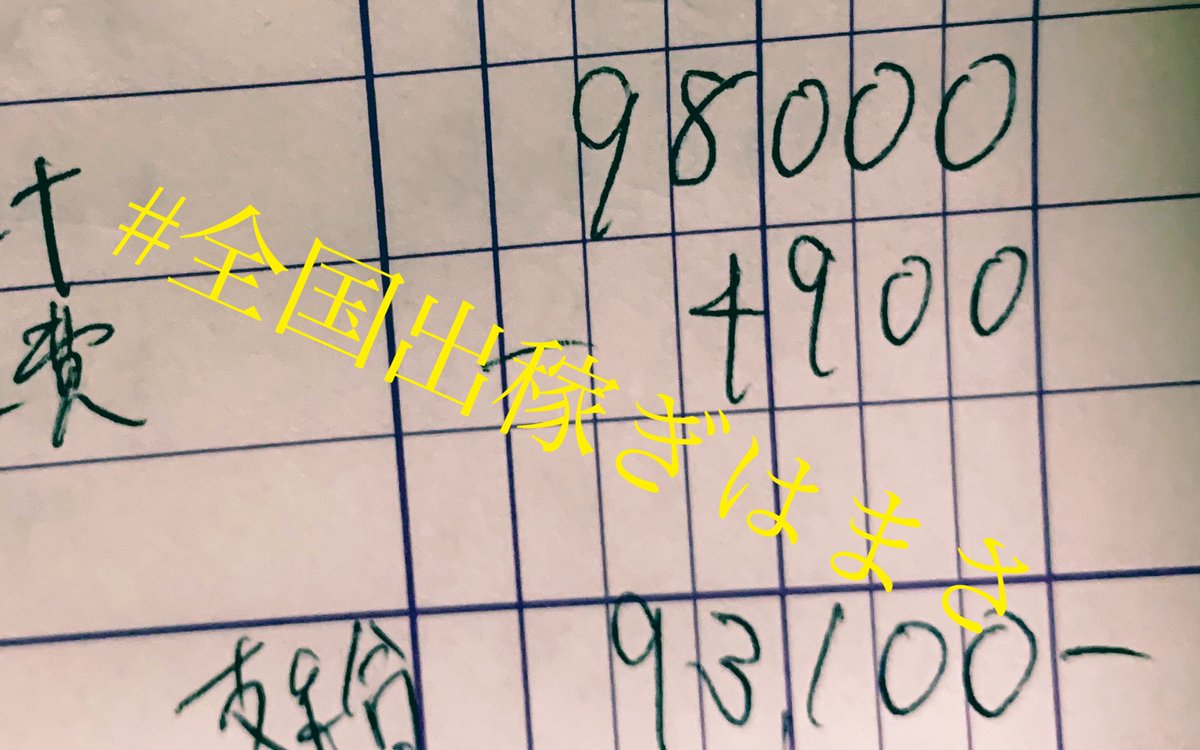 計 98000
#全国出稼ぎはまさ
費 - 4900
支給 93,100-